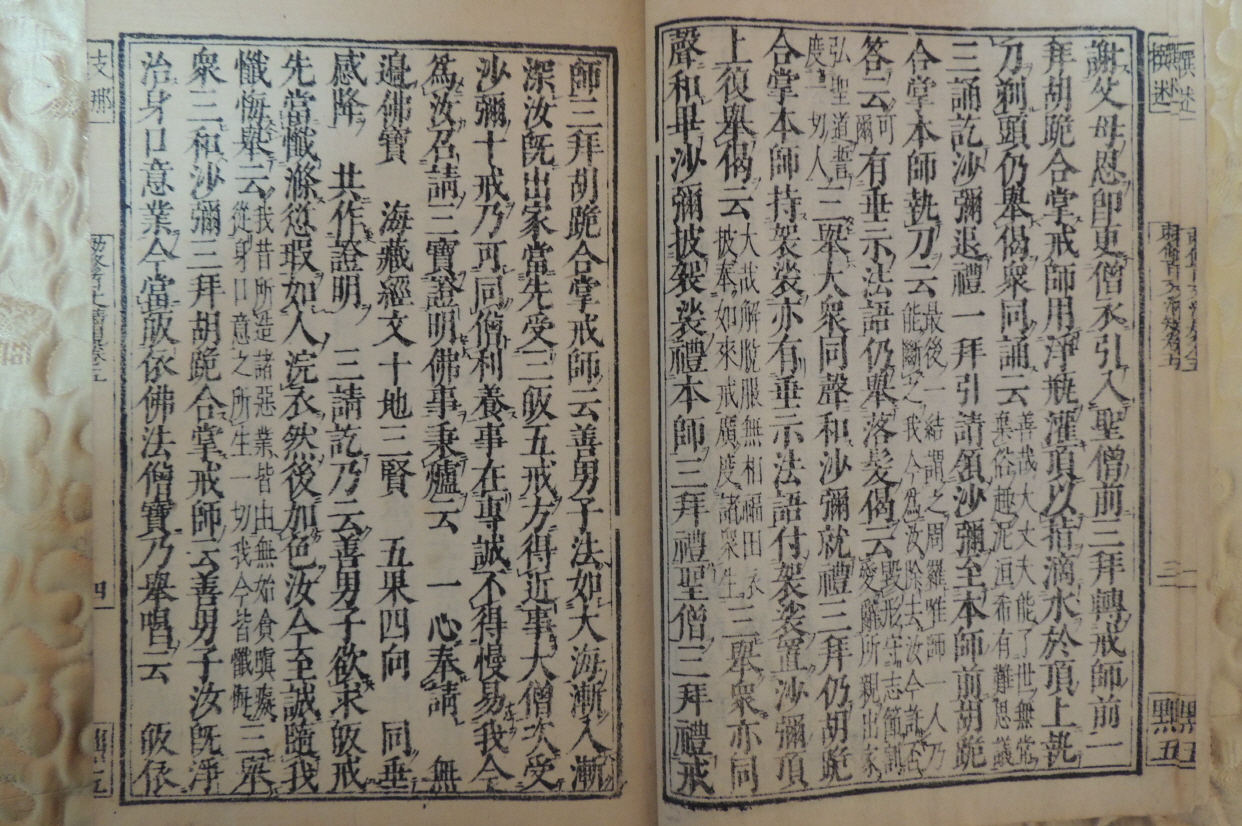 謝父母恩卽更僧衣引入聖僧前三拜轉戒師前一
拜胡跪合掌戒師用淨瓶灌頂以指滴水於頂上執
刀剃頭仍舉偈衆同誦云善哉大丈夫能了世無常棄俗趣泥洹希有難思議
三誦訖沙彌退禮一拜引請領沙彌至本師前胡跪
合掌本師執刀云最後一結謂之周羅唯師一人乃能斷之我今爲汝除去汝今許否
答云可爾有垂示法語仍舉落髮偈云毀形守志節割愛辭所親出家
弘聖道誓度一切人三舉大衆同聲和沙彌就禮三拜仍胡跪
合掌本師持袈裟亦有垂示法語付袈裟置沙彌頂
上復舉偈云大哉解脫服無相福田衣披奉如來戒廣度諸衆生三舉衆亦同
聲和畢沙彌披袈裟禮本師三拜禮聖僧三拜禮戒
師三拜胡跪合掌戒師云善男子法如大海漸入漸
深汝旣出家當先受三皈五戒方得近事大僧次受
沙彌十戒乃可同僧利養事在專誠不得慢易我今
爲汝召請三寶證明佛事秉爐云 一心奉請 無
邊佛寶 海藏經文十地三賢 五果四向 同垂
感降 共作證明 三請訖乃云善男子欲求皈戒
先當懺滌愆瑕如人浣衣然後加色汝今至誠隨我
懺悔舉云我昔所造諸惡業皆由無始貪嗔癡從身口意之所生一切我今皆懺悔三舉
衆三和沙彌三拜胡跪合掌戒師云善男子汝旣淨
治身口意業今當皈依佛法僧寶乃舉唱云 皈依
支那
四